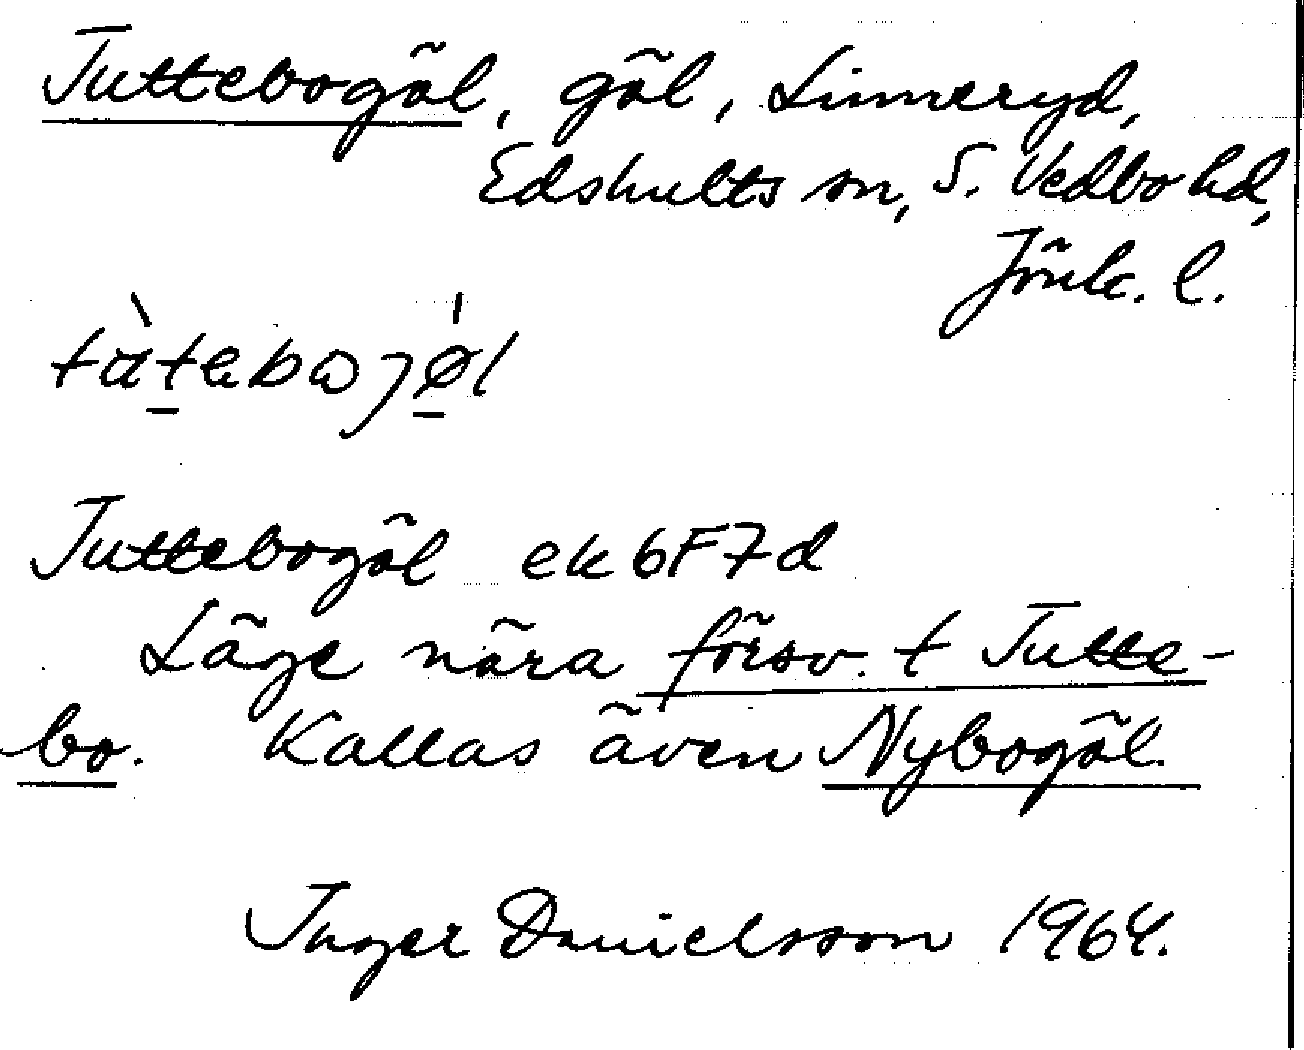 Tuttebogöl, göl, Linneryd,
Edshults sn, S. Vedbo hd,
Jönk. l.
Tuttebogöl ek 6F7d
Läge nära försv. t Tutte-
bo. Kallas även Nybogöl.
Inger Danielsson 1964.